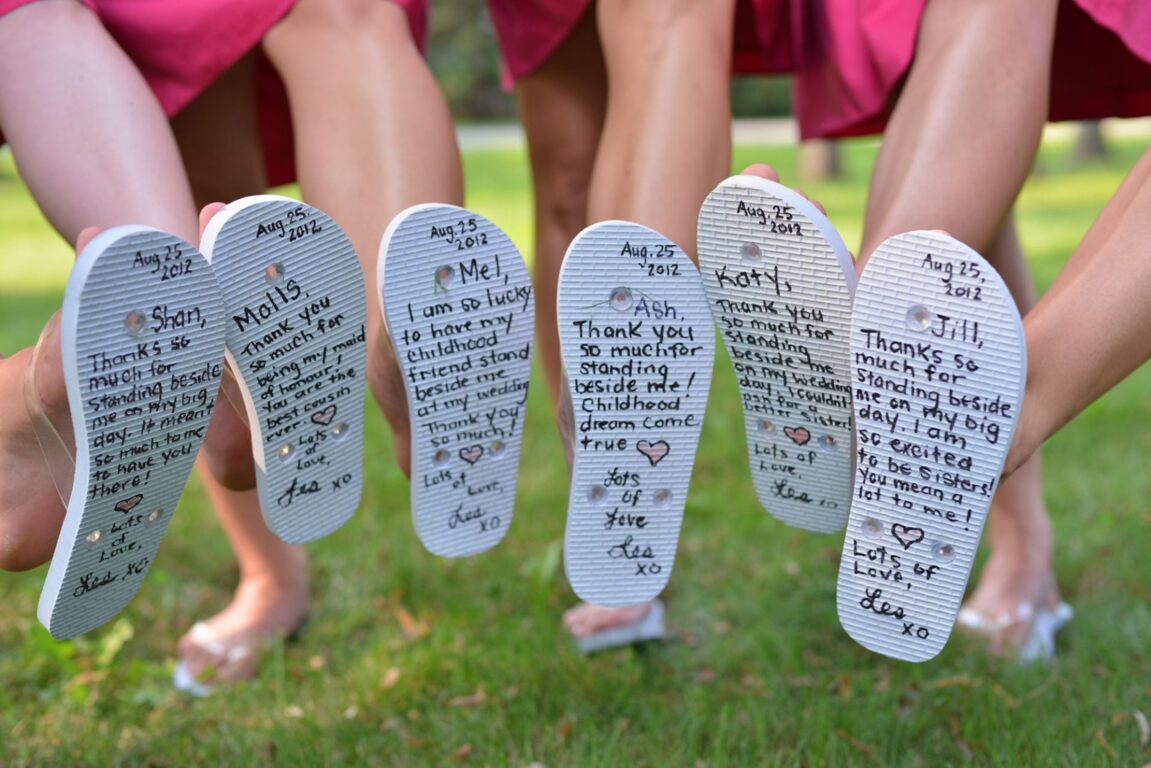 Aug. 25
2012
Shan,
Thanks so
much for
standing beside
me on my big
day, it meant
so much to me
to have you
there!
Lots
of
Love,
Les xo
Aug. 25,
2012
Molls,
Thank you
so much for
being my maid
of honour,
You are the
best cousin
ever
Lots
of
Love,
Les xo
Aug. 25
2012
Mel,
I am so lucky
to have my
childhood
friend stand
beside me
at my wedding
Thank you
so much!
Lots
of
Love,
Les
xo
Aug. 25,
2012
Ash,
Thank you
so much for
standing
beside me!
Childhood
dream come
true
Lots
of
Love
Les
xo
Aug. 25,
2012
Katy,
Thank you
so much for
standing
beside me
on my wedding
day
sister!
Lots of
Love
Les xo
Aug. 25,
2012
Jill,
Thanks so
much for
standing beside
me on my big
day, I am
so excited
to be sisters!
You mean a
lot to me!
Lots of
Love,
Les
xo